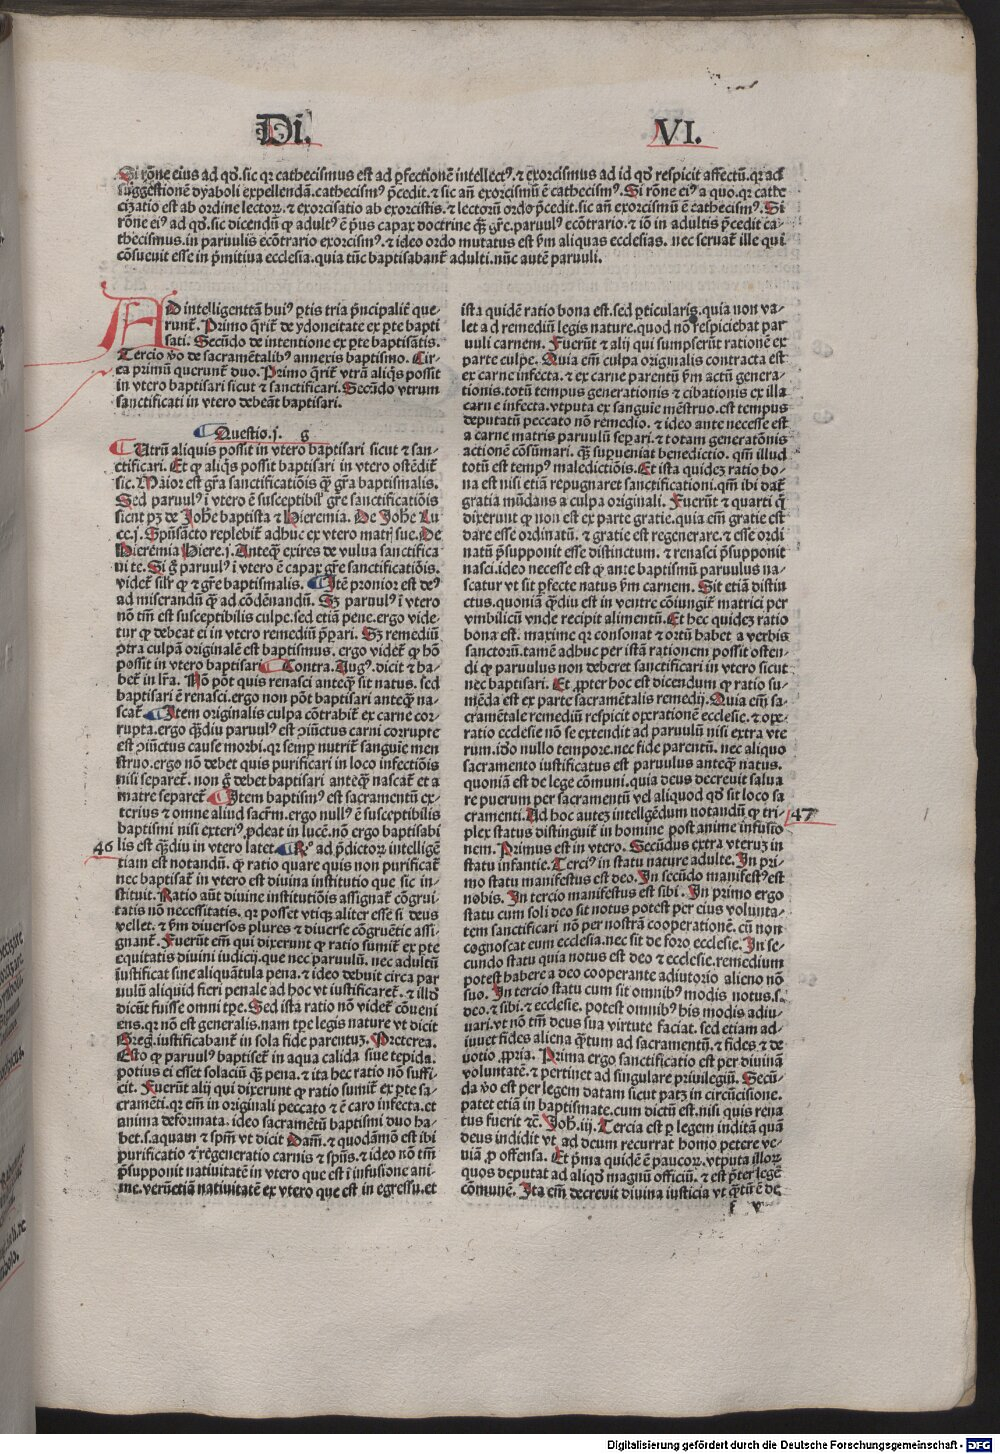 Di.
VI.
Si rõne eius ad qd̕.sic qr cathecismus est ad ꝑfectionẽ intellectꝰ.⁊ exorcismus ad id qd̕ respicit affectũ.qr ad
suggestionẽ dyaboli expellendã.cathecismꝰ p̃cedit.⁊ sic añ exorcismũ ẽ cathecismꝰ. Si rõne eiꝰ a quo.qr cathe
cizatio est ab ordine lectorꝝ.⁊ exorcisatio ab exorcistis.⁊ lectorũ ordo p̃cedit.sic añ exorcismũ ẽ cathecismꝰ. Si
rõne eiꝰ ad qd̕.sic dicendũ ꝙ adultꝰ ẽ pꝰus capax doctrine q̃ꝫ gr̃e.paruulꝰ ecõtrario.⁊ iõ in adultis p̃cedit ca-
thecismus.in paruulis ecõtrario exorcismꝰ.⁊ ideo ordo mutatus est ẜm aliquas ecclesias. nec seruat̃ ille qui
cõsueuit esse in p̃mitiua ecclesia.quia tũc baptisabant̃ adulti.nũc autẽ paruuli.
AD intelligentiã huiꝰ ꝑtis tria p̃ncipalit̃ que-
runt̃. Primo q̃rit̃ de ydoneitate ex ꝑte bapti
sati. Secũdo de intentione ex ꝑte baptisãtis.
Tercio ꝟo de sacramẽtalibꝰ annexis baptismo. Cir-
ca primũ querunt̃ duo. Primo q̃rit̃ vtrũ aliq̃s possit
in vtero baptisari sicut ⁊ sanctificari. Secũdo vtrum
sanctificati in vtero debeãt baptisari.
Questio.j.
Utrũ aliquis possit in vtero baptisari sicut ⁊ san-
ctificari. Et ꝙ aliq̃s possit baptisari in vtero ostẽdit̃
sic. Maior est gr̃a sanctificatiõis q̃ꝫ gr̃a baptismalis.
Sed paruulꝰ ĩ vtero ẽ susceptibil̕ gr̃e sanctificatiõis
sicut pꝫ de Joh̃e baptista ⁊ Hieremia. De Joh̃e Lu
ce.j. Spũsãcto replebit̃ adhuc ex vtero matr̃ sue. De
Hieremia Hiere.j. Anteq̃ꝫ exires de vulua sanctifica
ui te. Si g̃ paruulꝰ ĩ vtero ẽ capax gr̃e sanctificatiõis.
videt̃ sil̕r ꝙ ⁊ gr̃e baptismalis. Itẽ pronior est deꝰ
ad miserandũ q̃ꝫ ad cõdẽnandũ. Sꝫ paruulꝰ ĩ vtero
nõ tm̃ est susceptibilis culpe.sed etiã pene.ergo vide-
tur ꝙ debeat ei in vtero remediũ p̃pari. Sꝫ remediũ
ↄtra culpã originalẽ est baptismus. ergo videt̃ ꝙ hõ
possit in vtero baptisari Contra. Augꝰ. dicit ⁊ ha-
bet̃ in lr̃a. Nõ põt quis renasci anteq̃ꝫ sit natus. sed
baptisari ẽ renasci.ergo non põt baptisari anteq̃ꝫ na-
scat̃. Item originalis culpa cõtrahit̃ ex carne cor-
rupta.ergo q̃ꝫdiu paruulꝰ est ↄiũctus carni corrupte
est ↄiũctus cause morbi.qr semꝑ nutrit̃ sanguie men
struo.ergo nõ debet quis purificari in loco infectiõis
nisi separet̃. non g̃ debet baptisari anteq̃ꝫ nascat̃ et a
matre separet̃ Item baptismꝰ est sacramentũ ex-
terius ⁊ omne aliud sacr̃m.ergo nullꝰ ẽ susceptibilis
baptismi nisi exteriꝰ ꝓdeat in lucẽ.nõ ergo baptisabi
46 lis est q̃ꝫdiu in vtero latet. Rᵒ ad p̃dictorꝝ intelligẽ
tiam est notandũ. ꝙ ratio quare quis non purificat̃
nec baptisat̃ in vtero est diuina institutio que sic in-
stituit. Ratio aũt diuine institutiõis assignat̃ cõgrui-
tatis nõ necessitatis. qr posset vtiqꝫ aliter esse si deus
vellet. ⁊ ẜm diuersos plures ⁊ diuerse cõgruẽtie assi-
gnant̃. Fuerũt em̃ qui dixerunt ꝙ ratio sumit̃ ex ꝑte
equitatis diuini iudicij.que nec paruulũ. nec adultũ
iustificat sine aliquãtula pena.⁊ ideo debuit circa par
uulũ aliquid fieri penale ad hoc vt iustificaret̃. ⁊ illd̕
dicũt fuisse omni tp̃e. Sed ista ratio nõ videt̃ cõueni
ens.qr nõ est generalis.nam tp̃e legis nature vt dicit
Greg̃.iustificabant̃ in sola fide parentuꝫ. Preterea.
Esto ꝙ paruulꝰ baptiset̃ in aqua calida siue tepida.
potius ei esset solaciũ q̃ꝫ pena.⁊ ita hec ratio nõ suffi-
cit. Fuerũt alij qui dixerunt ꝙ ratio sumit̃ ex ꝑte sa-
cramẽti.qr em̃ in originali peccato ⁊ ẽ caro infecta.et
anima deformata. ideo sacramẽtũ baptismi duo ha-
bet.s.aquam ⁊ spm̃ vt dicit Dam̃. ⁊ quodãmõ est ibi
purificatio ⁊ regeneratio carnis ⁊ spũs.⁊ ideo nõ tm̃
p̃supponit natiuitatẽ in vtero que est ĩ infusione ani-
me. verũetiã natiuitatẽ ex vtero que est in egressu.et
ista quidẽ ratio bona est.sed ꝑticularis.quia non va-
let ad remediũ legis nature.quod nõ respiciebat par
uuli carnem. Fuerũt ⁊ alij qui sumpserũt rationẽ ex
parte culpe. Quia em̃ culpa originalis contracta est
ex carne infecta.⁊ ex carne parentũ ẜm actũ genera-
tionis.totũ tempus generationis ⁊ cibationis ex illa
carne infecta.vtputa ex sanguie mẽstruo.est tempus
deputatũ peccato nõ remedio. ⁊ ideo ante necesse est
a carne matris paruulũ separi.⁊ totam generatõnis
actionẽ cõsũmari. q̃ꝫ superueniat benedictio. qm̃ illud
totũ est tempꝰ maledictiõis. Et ista quidez ratio bo-
na est nisi etiã repugnaret sanctificationi.qm̃ ibi dat̃
gratia mũdans a culpa originali. Fuerũt ⁊ quarti q̃
dixerunt ꝙ non est ex parte gratie.quia em̃ gratie est
dare esse ordinatũ. ⁊ gratie est regenerare.⁊ esse ordi
natũ p̃supponit esse distinctum. ⁊ renasci p̃supponit
nasci.ideo necesse est ꝙ ante baptismũ paruulus na-
scatur vt sit ꝑfecte natus ẜm carnem. Sit etiã distin
ctus.quoniã q̃ꝫdiu est in ventre cõiungit̃ matrici per
vmbilicũ vnde recipit alimentũ. Et hec quidez ratio
bona est. maxime qr consonat ⁊ ortũ habet a verbis
sanctorũ.tamẽ adhuc per istã rationem possit osten-
di ꝙ paruulus non deberet sanctificari in vtero sicut
nec baptisari. Et ꝓpter hoc est dicendum ꝙ ratio su-
mẽda est ex parte sacramẽtalis remedij. Quia em̃ sa-
cramẽtale remediũ respicit operationẽ ecclesie.⁊ ope-
ratio ecclesie nõ se extendit ad paruulũ nisi extra vte
rum.iõo nullo tempore.nec fide parentũ. nec aliquo
sacramento iustificatus est paruulus anteq̃ꝫ natus.
quoniã est de lege cõmuni.quia deus decreuit salua
re puerum per sacramentũ vel aliquod qd̕ sit loco sa
cramenti. Ad hoc autez intellgẽdum notandũ ꝙ tri- 47
plex status distinguit̃ in homine post anime infusio
nem. Primus est in vtero. Secũdus extra vteruz in
statu infantie. Terciꝰ in statu nature adulte. In pri-
mo statu manifestus est deo. In secũdo manifestꝰ est
nobis. In tercio manifestus est sibi. In primo ergo
statu cum soli deo sit notus potest per eius volunta-
tem sanctificari nõ per nostrã cooperationẽ. cũ non
cognoscat eum ecclesia.nec sit de foro ecclesie. In se-
cundo statu quia notus est deo ⁊ ecclesie.remedium
potest habere a deo cooperante adiutorio alieno nõ
suo. In tercio statu cum sit omnibꝰ modis notus.s.
deo.⁊ sibi.⁊ ecclesie. potest omnibꝰ his modis adiu-
uari.vt nõ tm̃ deus sua virtute faciat. sed etiam ad-
iuuet fides aliena q̃tum ad sacramentũ.⁊ fides ⁊ de
uotio ꝓpria. Prima ergo sanctificatio est per diuinã
voluntatẽ.⁊ pertinet ad singulare priuilegiũ. Secũ-
da ꝟo est per legem datam sicut patꝫ in circũcisione.
patet etiã in baptismate.cum dictũ est.nisi quis rena
tus fuerit ⁊c̃. Joh̃.iij. Tercia est ꝑ legem inditã quã
deus indidit vt ad deum recurrat homo petere ve-
niã ꝓ offensa. Et p̃ma quidẽ ẽ paucorꝝ.vtputa illorꝝ
quos deputat ad aliqd̕ magnũ officiũ. ⁊ est p̃ter legẽ
cõmunẽ. Ita em̃ decreuit diuina iusticia vt q̃tũ ẽ de
f v
Digitalisierung gefördert durch die Deutsche Forschungsgemeinschaft - DFG